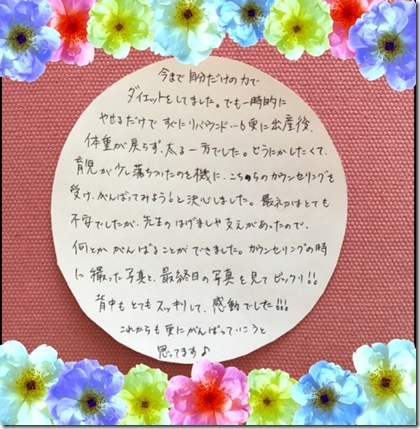 今まで自分だけの力で
ダイエットをしてました。でも一時的に
やせるだけですぐにリバウンド…6更に出産後、
体重が戻らず、太る一方でした。どうにかしたくて、
育児が少し落ちついたのを機に、こちらのカウンセリングを
受け、がんばってみよう!と決心しました。最初はとても
不安でしたが、先生のはげましや支えがあったので、
何とかがんばることができました。カウンセリングの時
に撮った写真と、最終日の写真を見てビックリ!!
背中もとてもスッキリして、感動でした!!!
これからも更にがんばっていこうと
思ってます♪